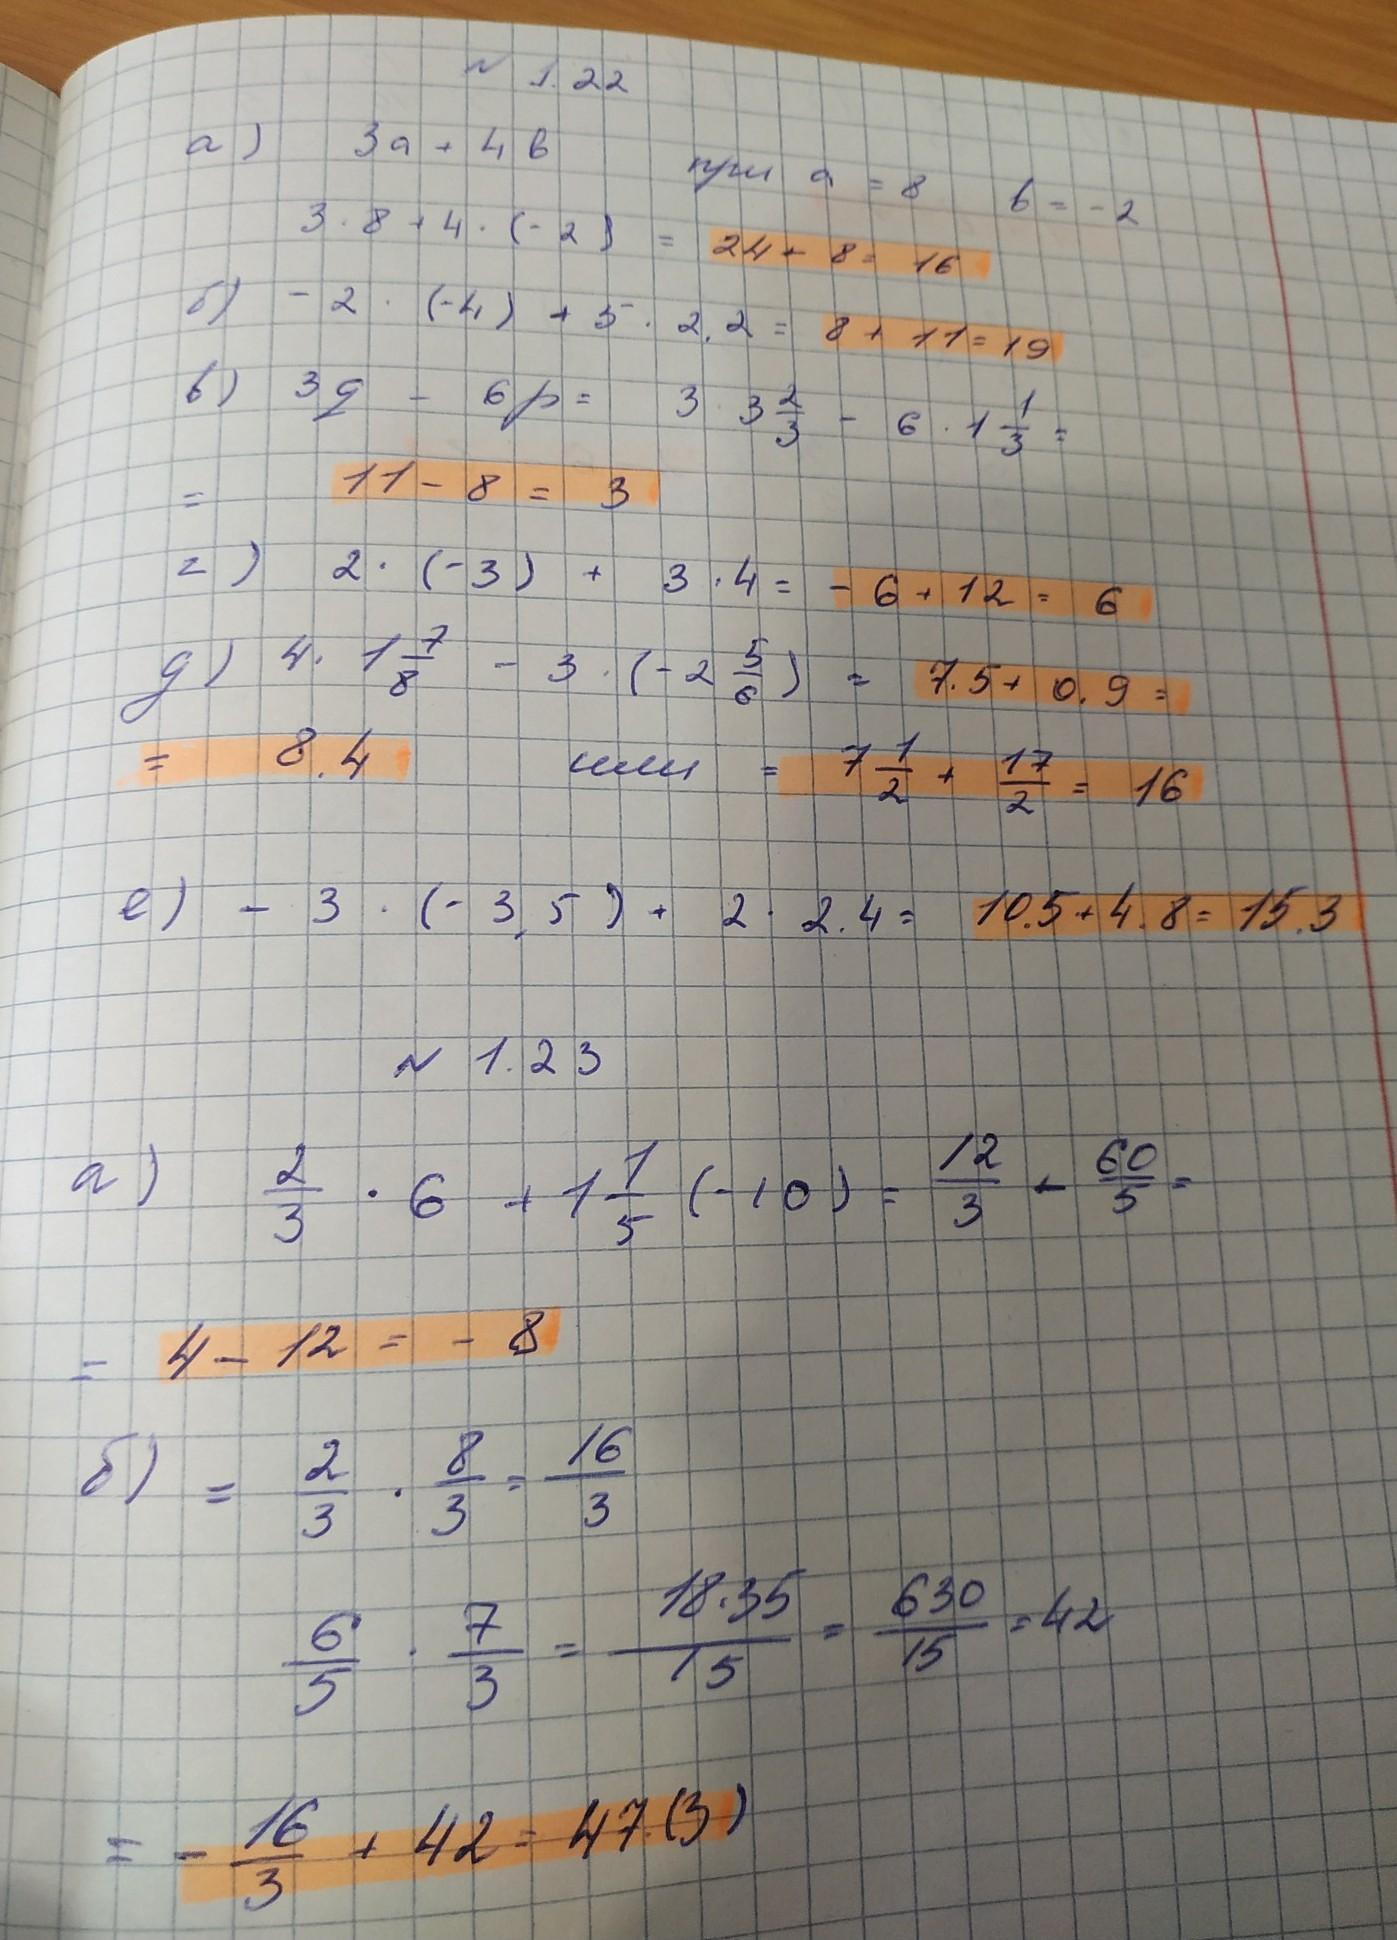 № 1.22
а) 3a + 4b при a = 8 b = -2
3 · 8 + 4 · (-2) = 24 - 8 = 16
б) - 2 · (-4) + 5 · 2,2 = 8 + 11 = 19
в) 3q - 6p = 3 · 3 2/3 - 6 · 1 1/3 =
= 11 - 8 = 3
г) 2 · (-3) + 3 · 4 = - 6 + 12 = 6
д) 4 · 1 7/8 - 3 · (-2 5/6) = 7.5 + 0.9 =
= 8.4 или = 7 1/2 + 17/2 = 16
е) - 3 · (-3,5) + 2 · 2.4 = 10.5 + 4.8 = 15.3
№ 1.23
а) 2/3 · 6 + 1 1/5 (-10) = 12/3 - 60/5 =
= 4 - 12 = - 8
б) = 2/3 · 8/3 = 16/3
6/5 · 7/3 = 18·35/15 = 630/15 = 42
= - 16/3 + 42 = 47.(3)